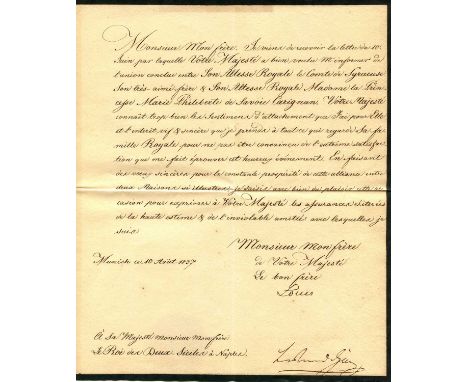 Monsieur Mon frère. Je viens de recevoir la lettre du 10
Juin par laquelle Votre Majesté a bien voulu M'informer de
l'union conclue entre Son Altesse Royale le Comte de Syracuse
Son très-aimé frère & Son Altesse Royale Madame la Prin-
cesse Marie Philiberte de Savoie Carignan. Votre Majesté
connaît trop bien les Sentimens d'attachement que J'ai pour Elle
et l'intérêt vif & sincère que je prends à tout ce qui regarde Sa fa-
mille Royale pour ne pas être convaincue de l'intime satisfac-
tion que me fait éprouver cet heureux événement. En faisant
des vœux sincères pour la constante prospérité de cette alliance entre
deux Maisons si illustres, je saisis avec bien du plaisir cette oc-
casion pour exprimer à Votre Majesté les assurances réiterées
de la haute estime & de l'inviolable amitié avec lesquelles je
suis
Monsieur Mon frère
de Votre Majesté
Le bon frère
Louis
Munich ce 10 Août 1837
À Sa Majesté Monsieur Mon frère
Le Roi des Deux Siciles à Naples